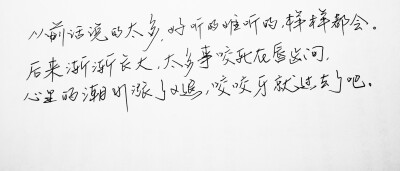 从前话说的太多，好听的难听的，样样都会。
后来渐渐长大，太多事咬死在唇齿间，
心里的潮汐涨了又退，咬咬牙就过去了吧。